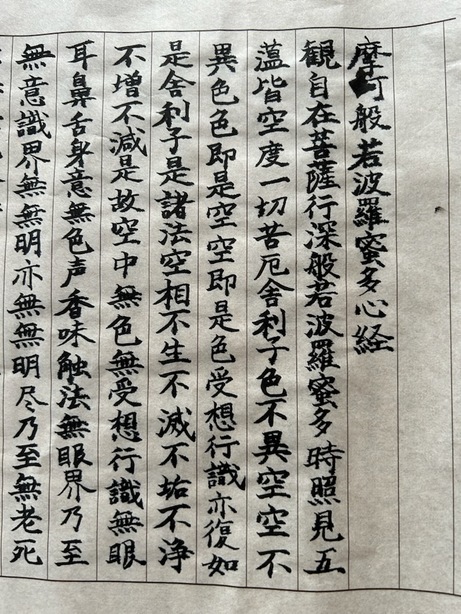 摩訶般若波羅蜜多心経
観自在菩薩行深般若波羅蜜多時照見五
薀皆空度一切苦厄舎利子色不異空空不
異色色即是空空即是色受想行識亦復如
是舎利子是諸法空相不生不滅不垢不浄
不増不減是故空中無色無受想行識無眼
耳鼻舌身意無色声香味触法無眼界乃至
無意識界無無明亦無無明尽乃至無老死